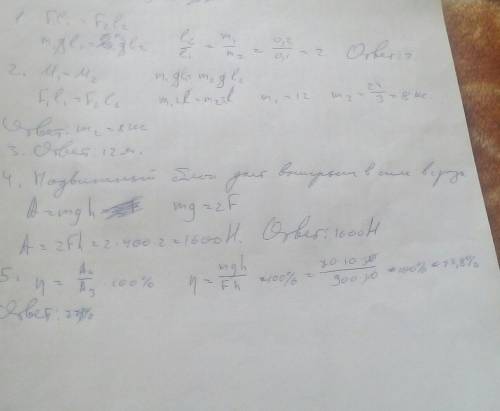 1. F₁l₁ = F₂l₂
m₁gl₁ = m₂gl₂ l₂/l₁ = m₁/m₂ = 0,2/0,1 = 2 Ответ: 2
2. M₁ = M₂ m₁gl₁ = m₂gl₂
F₁l₁ = F₂l₂ m₁ = 12 m₂ = 24/3 = 8 кг
Ответ: m₂ = 8 кг
3. Ответ 12 м.
4. Подвижный блок дает выигрыш в силе в 2 раза
A = mgh mg = 2F
A = 2Fh = 2·400·2 = 1600 H. Ответ: 1600 H
5. η = ·100% η = mgh/Fh ·100% = ·100% = 77,8%
Ответ: